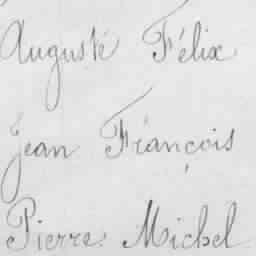 Auguste Félix
Jean François
Pierre Michel